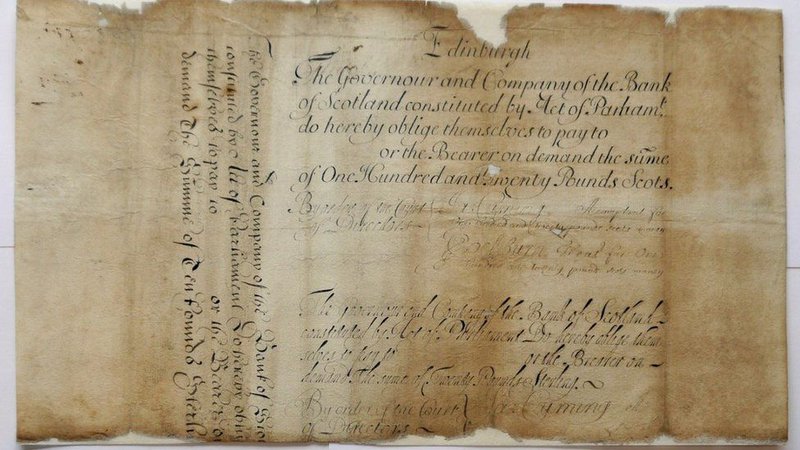 Edinburgh
The Governour and Company of the Bank
of Scotland constituted by Act of Parliamt.
do hereby oblige themselves to pay to
or the Bearer on demand the sume
of One Hundred and Twenty Pounds Scots.
By order of the Court
of Directors
hundred and twenty pound scots money
The Governour and Company of the Bank of Scotland
constituted by Act of Parliament Do hereby oblige them
selves to pay to or the Bearer on
demand The sume of Twenty Pounds Sterling.
By order of the Court
of Directors
The Governour and Company of the Bank of Sco
constituted by Act of Parliament Do hereby oblige
themselves to pay to or the Bearer on
demand The Summe of Ten Pounds Sterlin